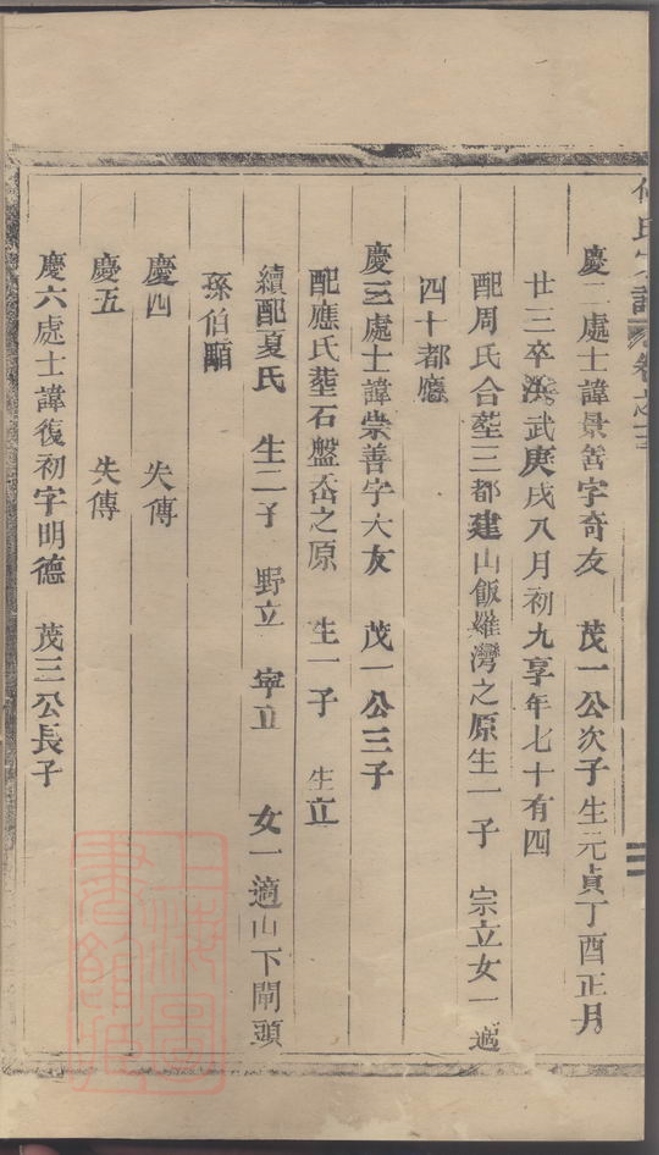 氏宗譜 卷之三
慶二處士諱景善字奇友 茂一公次子生元貞丁酉正月
廿三卒洪武庚戌八月初九享年七十有四
配周氏合塟三都建山飯籮灣之原生一子 宗立女一適
四十都應
慶三處士諱崇善字大友 茂一公三子
配應氏塟石盤岙之原 生一子 生立
續配夏氏 生二子 野立 寧立 女一適山下閘頭
孫伯顒
慶四 失傳
慶五 失傳
慶六處士諱復初字明德 茂三公長子
上海圖書館藏